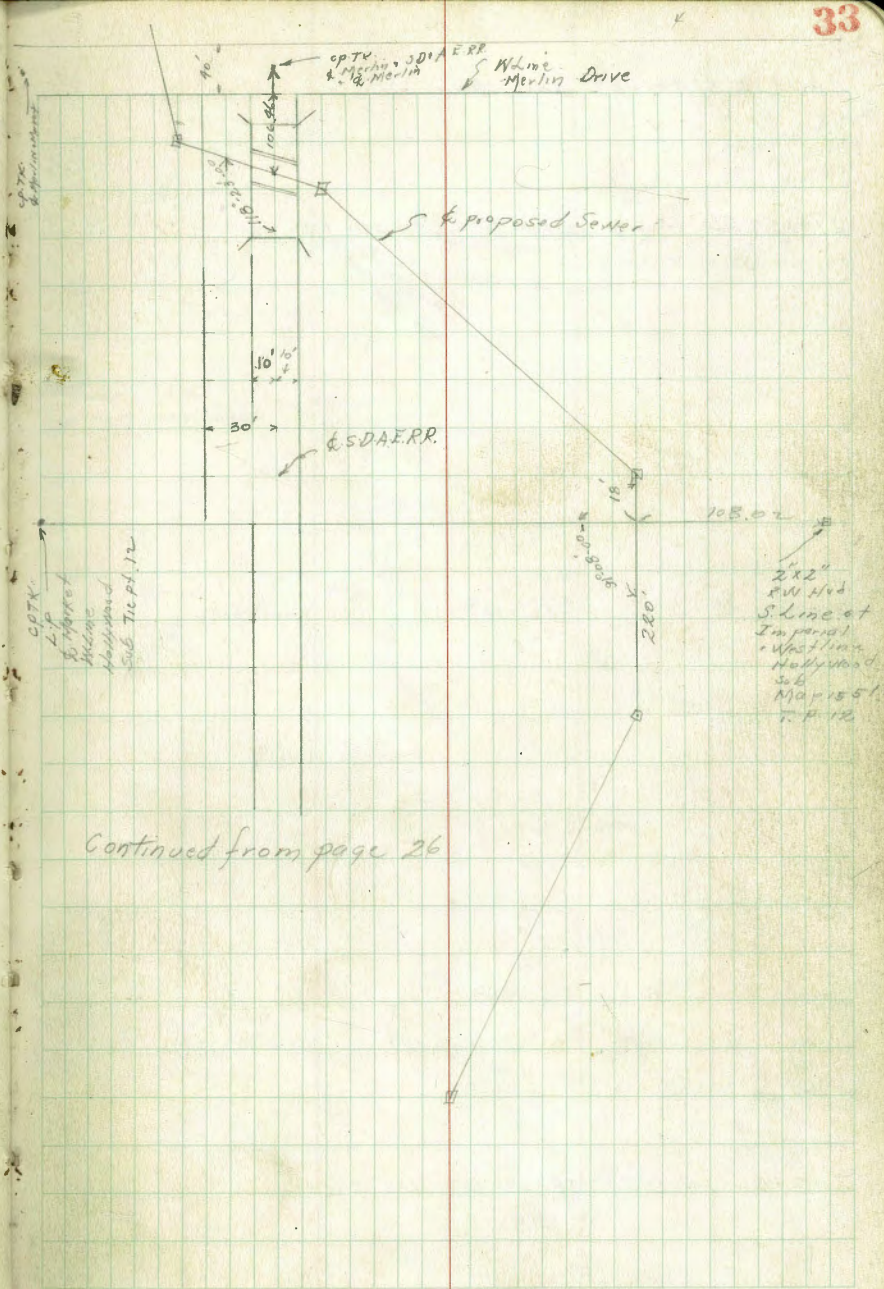 33
40'
cp. TK.
℄ Merlin & SD & A E RR
℄ Merlin
W Line
Merlin Drive
cp. TK.
106.46
118°-23'-00
℄ proposed Sewer
10'
10'
30'
℄ S.D.A.E.R.R.
18'
108.02
220'
cp TK
L.P
℄ Market
W Line
Hollywood
Sub Tie pt. 12
2"x2"
RW Hub
S. Line of
Imperial
& West line
Hollywood
Sub
Map 1551
T. P 12
Continued from page 26